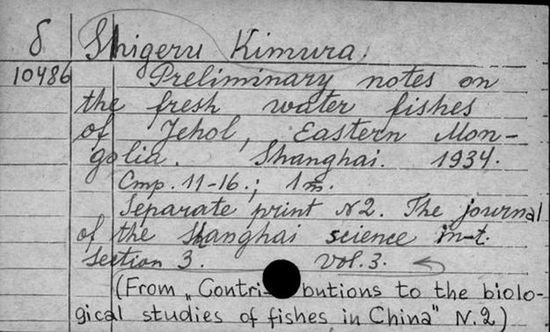 δ Shigeru Kimura.
10486 Preliminary notes on
the fresh water fishes
of Jehol, Eastern Mon-
golia. Shanghai. 1934.
Стр. 11-16.; 1 т.
Separate print N2. The journal
of the Shanghai science in-t.
Section 3. vol. 3.
(From „Contributions to the biolo-
gical studies of fishes in China" N.2)